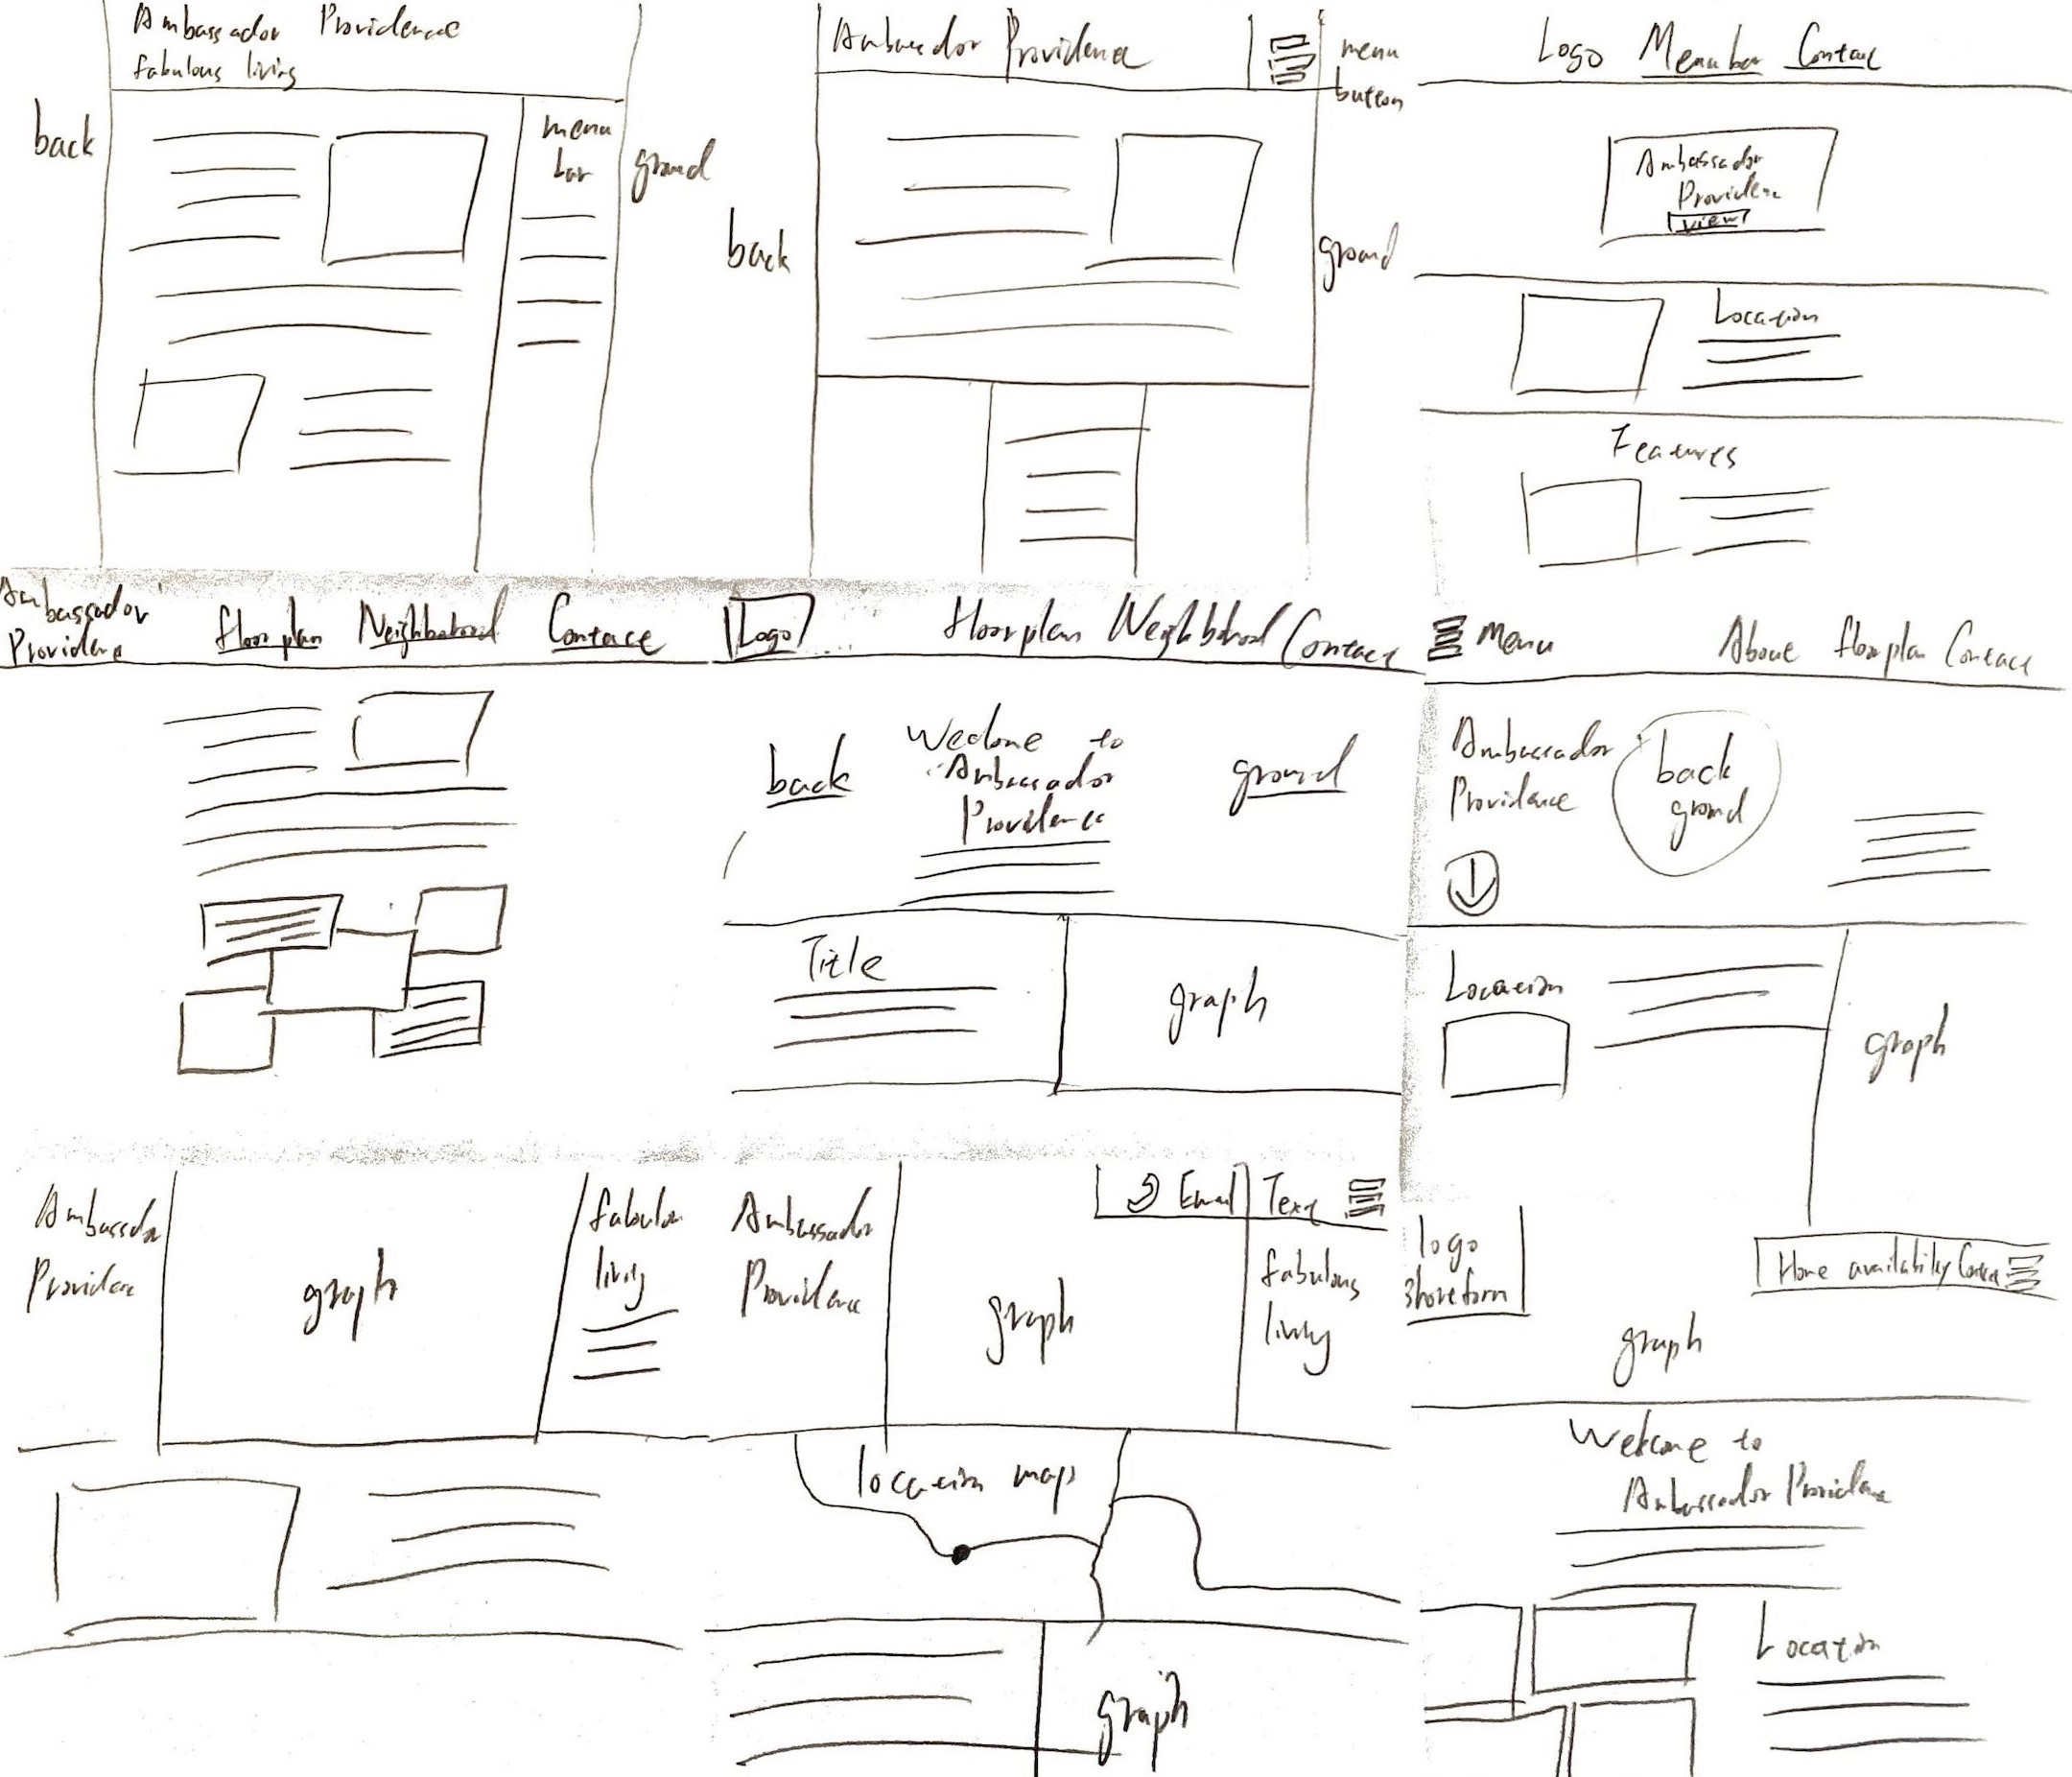 Ambassador Providence
fabulous living
back
menu
bar
ground
Ambassador Providence
menu
button
back
ground
Logo Menu bar Contact
Ambassador
Providence
view
Location
Features
Ambassador
Providence
floorplan Neighborhood Contact
Logo
floorplan Neighborhood Contact
back
Welcome to
Ambassador
Providence
ground
Title
graph
Menu
About floorplan Contact
Ambassador
Providence
back
ground
Location
graph
Ambassador
Providence
graph
fabulous
living
Ambassador
Providence
graph
Email Text
fabulous
living
location map
graph
logo
shortform
Home availability Contact
graph
Welcome to
Ambassador Providence
Location